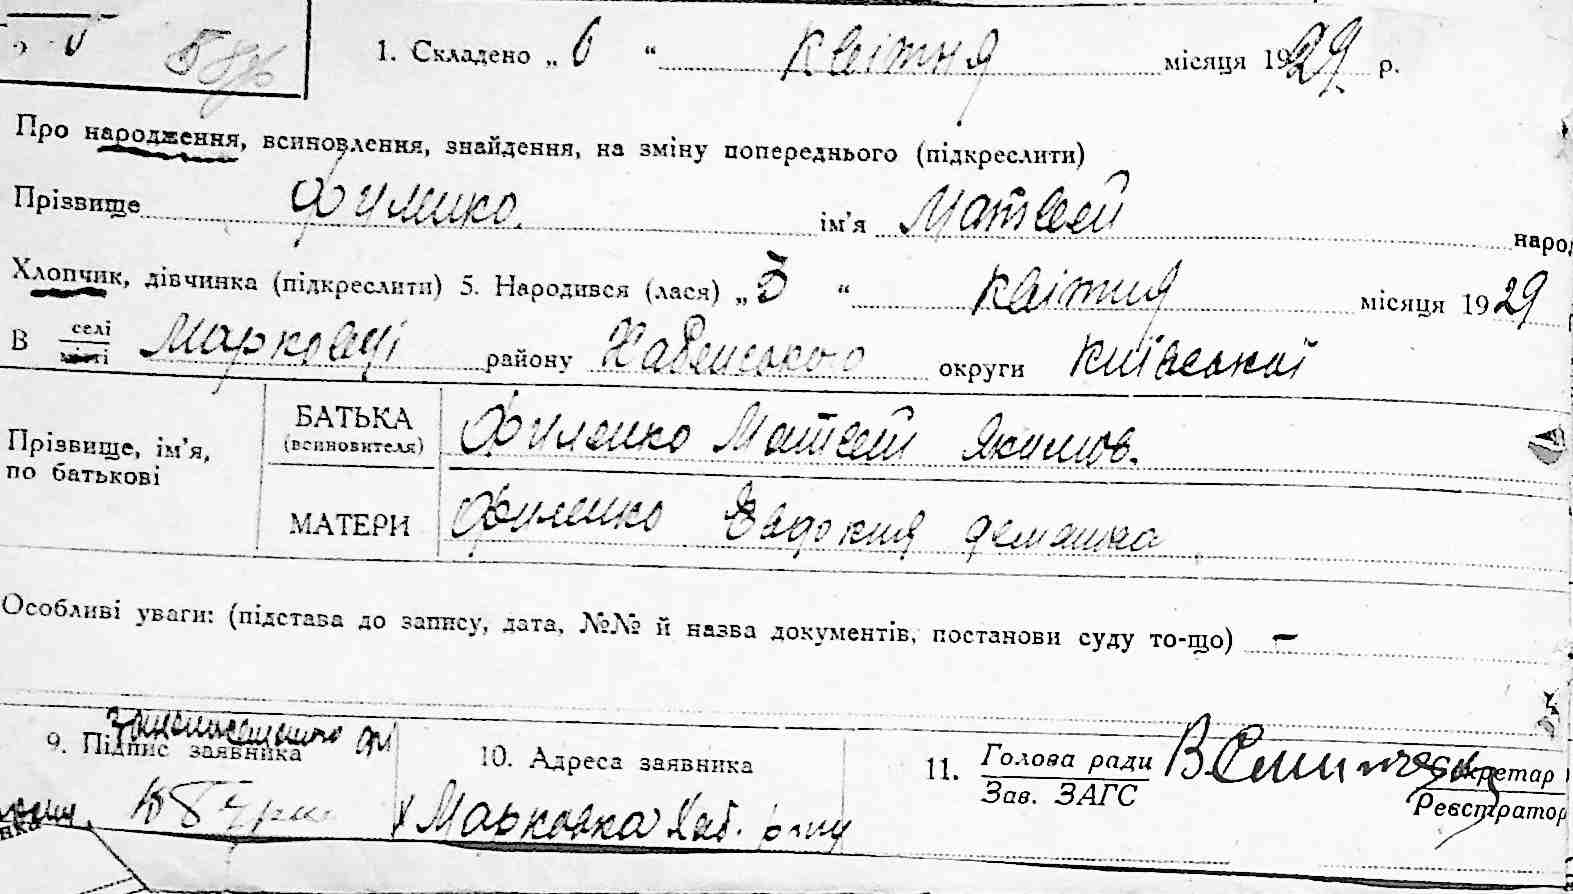 1. Складено „ 6 “ Квітня місяця 1929 р.
Про народження, всиновлення, знайдення, на зміну попереднього (підкреслити)
Прізвище Филенко. ім’я Матвей народ
Хлопчик, дівчинка (підкреслити) 5. Народився (лася) „ 5 “ Квітня місяця 1929
В селі Марковці району Хабенського округи Київської
місті
БАТЬКА Филенко Матвей Якимов.
(всиновителя)
Прізвище, ім’я,
по батькові
МАТЕРИ Филенко Евдокия
Особливі уваги: (підстава до запису, дата, №№ й назва документів, постанови суду то-що) –
9. Підпис заявника 10. Адреса заявника 11. Голова ради Секретар
Зав. ЗАГС Реєстратор
х Марковка Хаб. р-ну